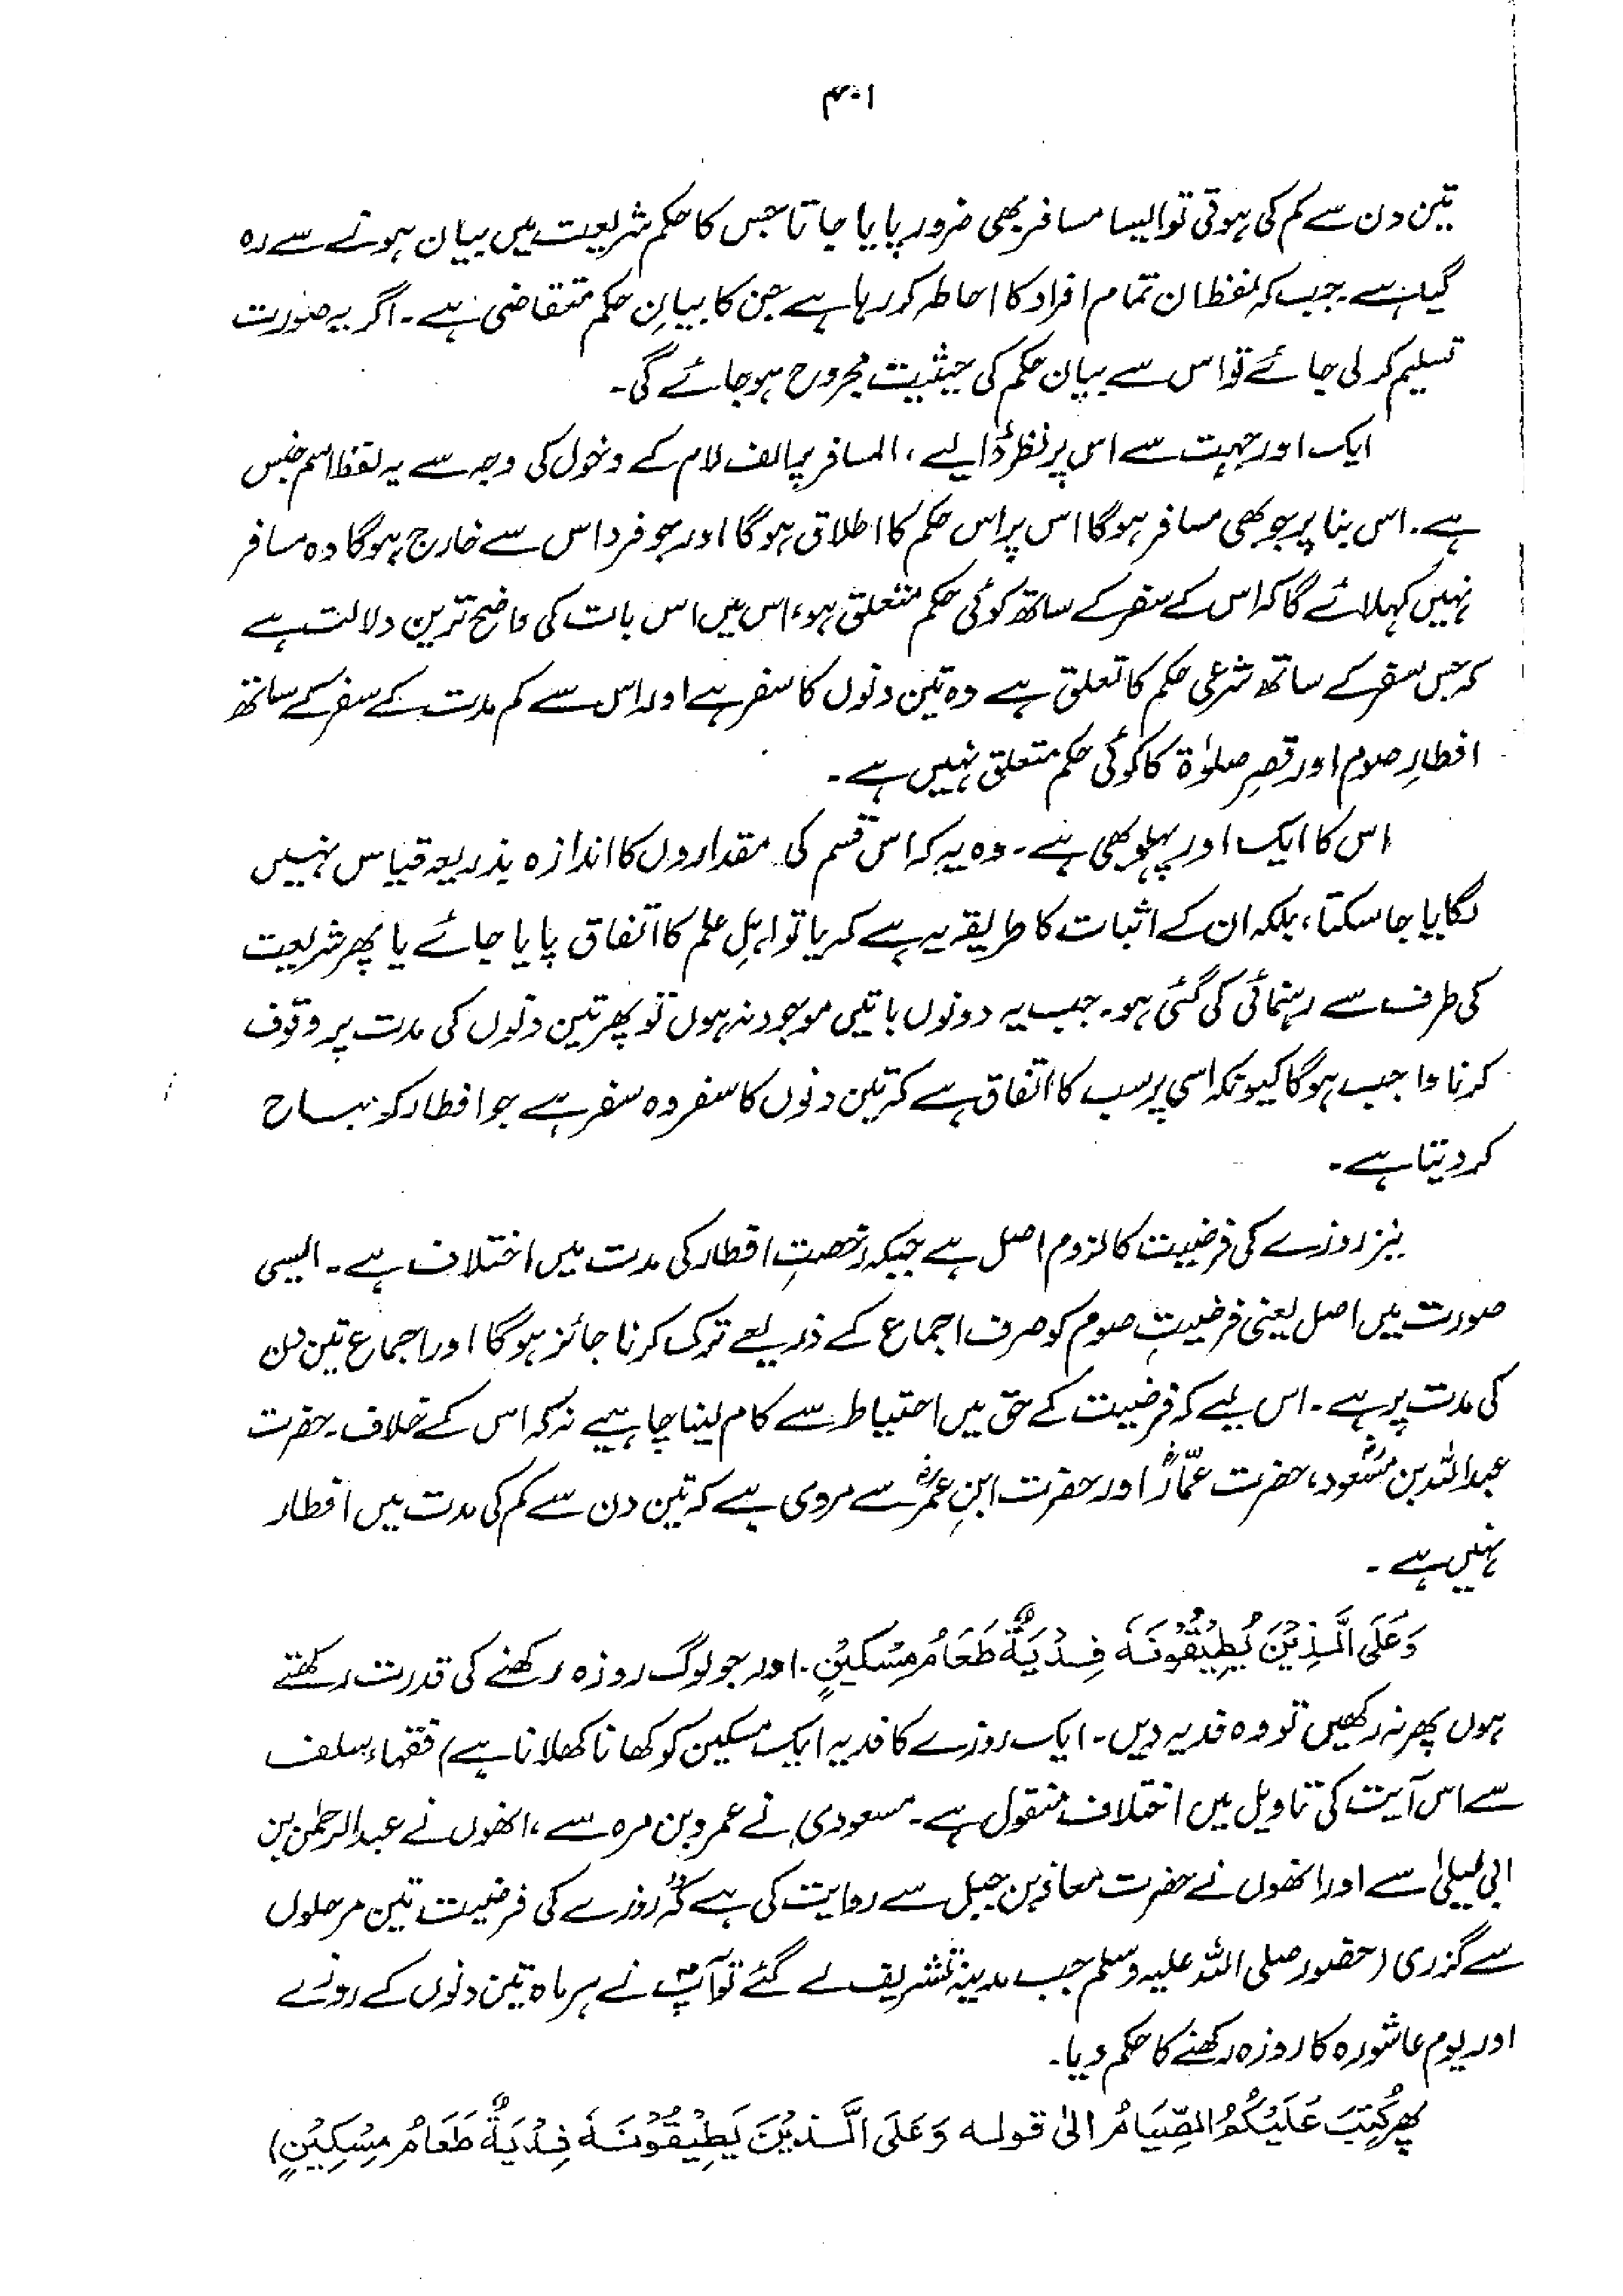 ۴۰۱
تین دن سے کم کی ہوتی تو ایسا مسافر بھی ضرور پایا جاتا جس کا حکم شریعت میں بیان ہونے سے رہ
گیا ہے۔ جب کہ لفظ ان تمام افراد کا احاطہ کر رہا ہے جن کا بیانِ حکم متقاضی ہے۔ اگر یہ صورت
تسلیم کر لی جائے تو اس سے بیان حکم کی حیثیت مجروح ہو جائے گی۔
ایک اور جہت سے اس پر نظر ڈالیے، المسافر پر الف لام کے دخول کی وجہ سے یہ لفظ اسم جنس
ہے۔ اس بنا پر جو بھی مسافر ہوگا اس پر اس حکم کا اطلاق ہوگا اور جو فرد اس سے خارج ہوگا وہ مسافر
نہیں کہلائے گا کہ اس کے سفر کے ساتھ کوئی حکم متعلق ہو، اس میں اس بات کی واضح ترین دلالت ہے
کہ جس سفر کے ساتھ شرعی حکم کا تعلق ہے وہ تین دنوں کا سفر ہے اور اس سے کم مدت کے سفر کے ساتھ
افطارِ صوم اور قصرِ صلوٰۃ کا کوئی حکم متعلق نہیں ہے۔
اس کا ایک اور پہلو بھی ہے۔ وہ یہ کہ اس قسم کی مقداروں کا اندازہ بذریعہ قیاس نہیں
لگایا جا سکتا، بلکہ ان کے اثبات کا طریقہ یہ ہے کہ یا تو اہلِ علم کا اتفاق پایا جائے یا پھر شریعت
کی طرف سے رہنمائی کی گئی ہو۔ جب یہ دونوں باتیں موجود نہ ہوں تو پھر تین دنوں کی مدت پر وقوف
کرنا واجب ہوگا کیونکہ اسی پر سب کا اتفاق ہے کہ تین دنوں کا سفر وہ سفر ہے جو افطار کو مباح
کر دیتا ہے۔
نیز روزے کی فرضیت کا لزوم اصل ہے جبکہ رخصتِ افطار کی مدت میں اختلاف ہے۔ ایسی
صورت میں اصل یعنی فرضیتِ صوم کو صرف اجماع کے ذریعے ترک کرنا جائز ہوگا اور اجماع تین دن
کی مدت پر ہے۔ اس لیے کہ فرضیت کے حق میں احتیاط سے کام لینا چاہیے نہ کہ اس کے خلاف۔ حضرت
عبداللہ بن مسعودؓ، حضرت عمّارؓ اور حضرت ابنِ عمرؓ سے مروی ہے کہ تین دن سے کم کی مدت میں افطار
نہیں ہے۔
وَعَلَى الَّذِيْنَ يُطِيْقُوْنَهٗ فِدْيَةٌ طَعَامُ مِسْكِيْنٍ۔ اور جو لوگ روزہ رکھنے کی قدرت رکھتے
ہوں پھر نہ رکھیں تو وہ فدیہ دیں۔ ایک روزے کا فدیہ ایک مسکین کو کھانا کھلانا ہے) فقہاء سلف
سے اس آیت کی تاویل میں اختلاف منقول ہے۔ مسعودی نے عمرو بن مرہ سے، انھوں نے عبدالرحمٰن بن
ابی لیلیٰ سے اور انھوں نے حضرت معاذ بن جبل سے روایت کی ہے کہ روزے کی فرضیت تین مرحلوں
سے گزری (حضور صلی اللہ علیہ وسلم جب مدینہ تشریف لے گئے تو آپؐ نے ہر ماہ تین دنوں کے روزے
اور یوم عاشورہ کا روزہ رکھنے کا حکم دیا۔
پھر كُتِبَ عَلَيْكُمُ الصِّيَامُ الیٰ قولہ وَعَلَى الَّذِيْنَ يُطِيْقُوْنَهٗ فِدْيَةٌ طَعَامُ مِسْكِيْنٍ)